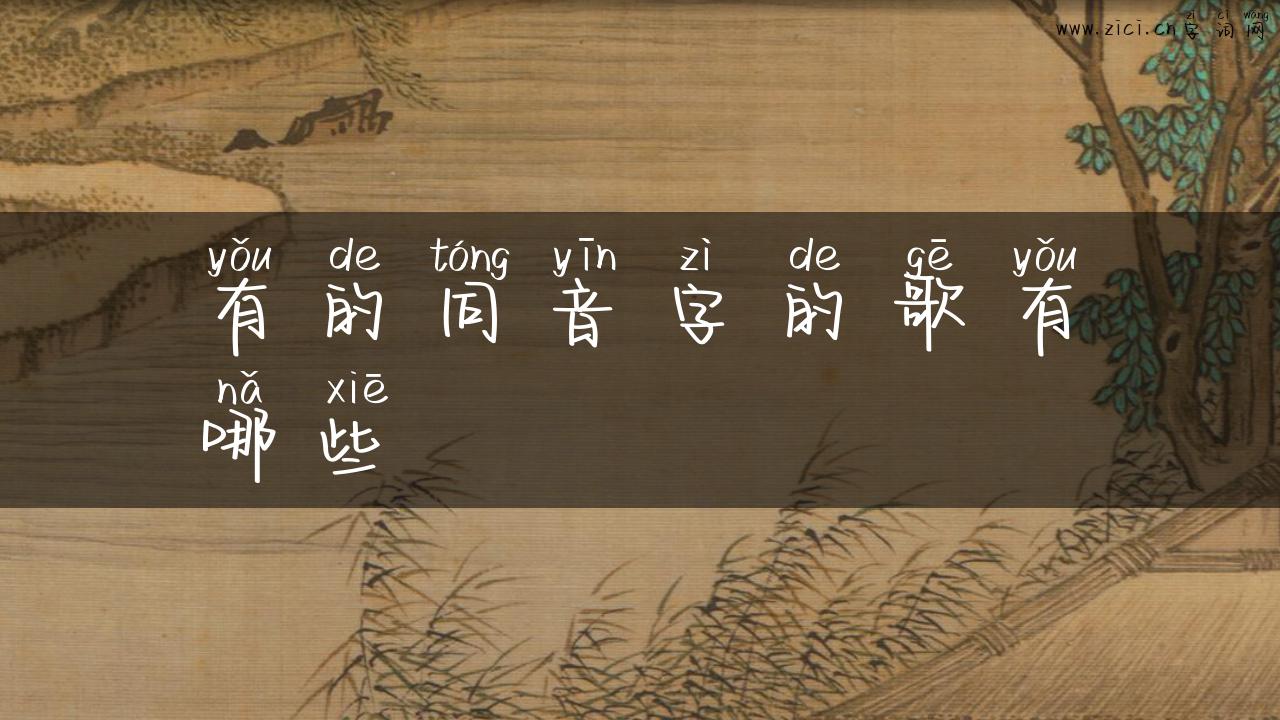 zì cí wǎng
www.zici.cn 字 词 网
yǒu de tóng yīn zì de gē yǒu
有 的 同 音 字 的 歌 有
nǎ xiē
哪 些